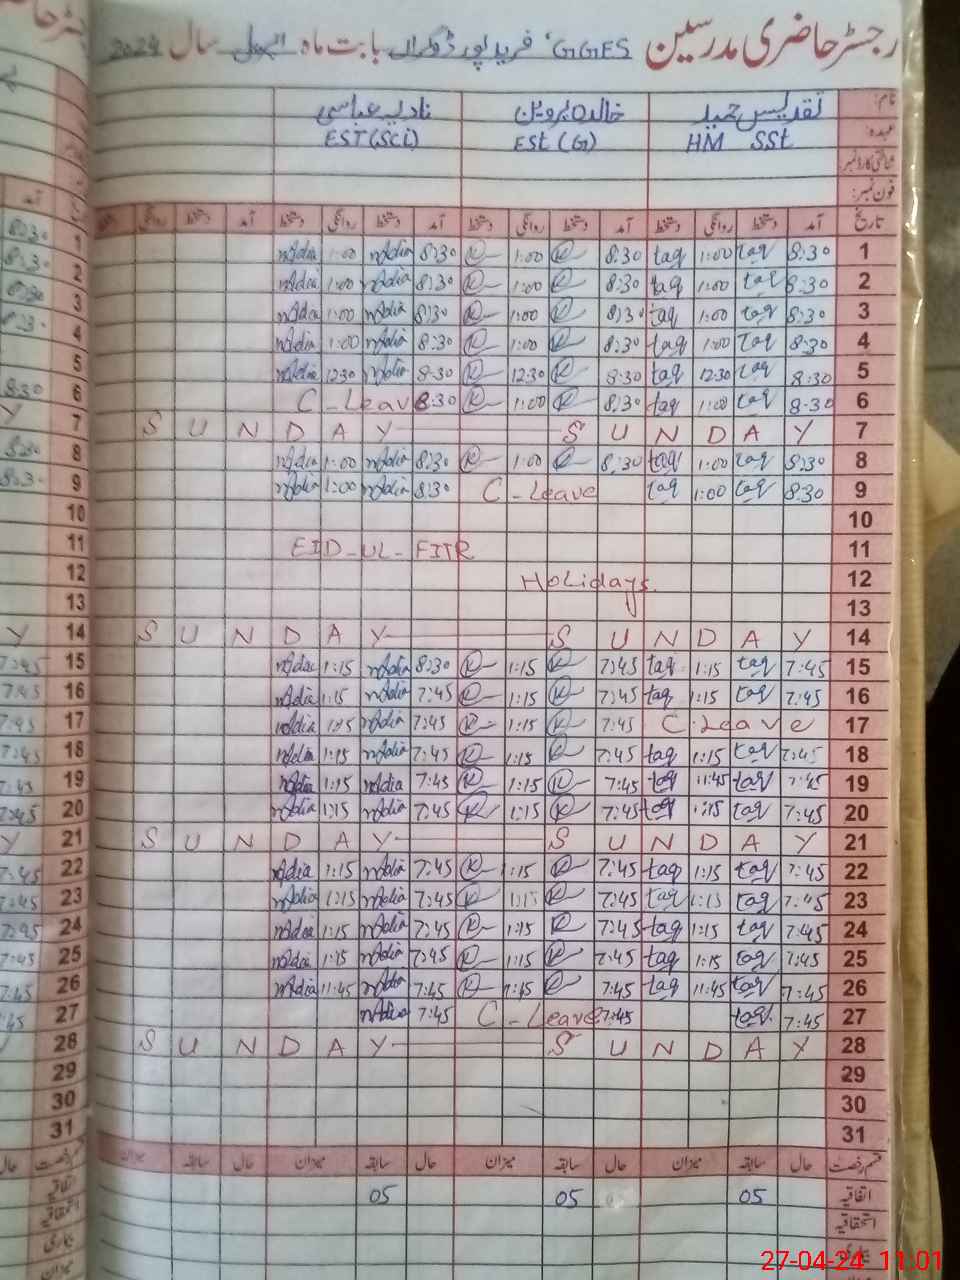 رجسٹر حاضری مدرسین GGES، فرید پور ڈوگراں بابت ماہ اپریل سال 2024
نام: تقدیس حمید خالدہ پروین نادیہ عباسی
عہدہ: HM SSt ESt (G) EST (SCi)
شناختی کارڈ نمبر:
فون نمبر:
تاریخ آمد دستخط روانگی دستخط آمد دستخط روانگی دستخط آمد دستخط روانگی دستخط آمد دستخط روانگی دستخط
1 8:30 taq 1:00 taq 8:30 K 1:00 K 8:30 nAdia 1:00 nAdia
2 8:30 taq 1:00 taq 8:30 K 1:00 K 8:30 nAdia 1:00 nAdia
3 8:30 taq 1:00 taq 8:30 K 1:00 K 8:30 nAdia 1:00 nAdia
4 8:30 taq 1:00 taq 8:30 K 1:00 K 8:30 nAdia 1:00 nAdia
5 8:30 taq 12:30 taq 8:30 K 12:30 K 8:30 nAdia 12:30 nAdia
6 8:30 taq 1:00 taq 8:30 K 1:00 K 8:30 C-Leave
7 S U N D A Y S U N D A Y
8 8:30 taq 1:00 taq 8:30 K 1:00 K 8:30 nAdia 1:00 nAdia
9 8:30 taq 1:00 taq C-Leave 8:30 nAdia 1:00 nAdia
10
11 EID-UL-FITR
12 Holidays.
13
14 S U N D A Y S U N D A Y
15 7:45 taq 1:15 taq 7:45 K 1:15 K 8:30 nAdia 1:15 nAdia
16 7:45 taq 1:15 taq 7:45 K 1:15 K 7:45 nAdia 1:15 nAdia
17 C-Leave 7:45 K 1:15 K 7:45 nAdia 1:15 nAdia
18 7:45 taq 1:15 taq 7:45 K 1:15 K 7:45 nAdia 1:15 nAdia
19 7:45 taq 11:45 taq 7:45 K 1:15 K 7:45 nAdia 1:15 nAdia
20 7:45 taq 1:15 taq 7:45 K 1:15 K 7:45 nAdia 1:15 nAdia
21 S U N D A Y S U N D A Y
22 7:45 taq 1:15 taq 7:45 K 1:15 K 7:45 nAdia 1:15 nAdia
23 7:45 taq 1:15 taq 7:45 K 1:15 K 7:45 nAdia 1:15 nAdia
24 7:45 taq 1:15 taq 7:45 K 1:15 K 7:45 nAdia 1:15 nAdia
25 7:45 taq 1:15 taq 7:45 K 1:15 K 7:45 nAdia 1:15 nAdia
26 7:45 taq 11:45 taq 7:45 K K 7:45 nAdia 11:45 nAdia
27 7:45 taq 7:45 C-Leave 7:45 nAdia
28 S U N D A Y S U N D A Y
29
30
31
قسم رخصت حال سابقہ میزان حال سابقہ میزان حال سابقہ میزان حال سابقہ میزان
اتفاقیہ 05 05 05
استحقاقیہ
بیماری
میزان
27-04-24 11:01